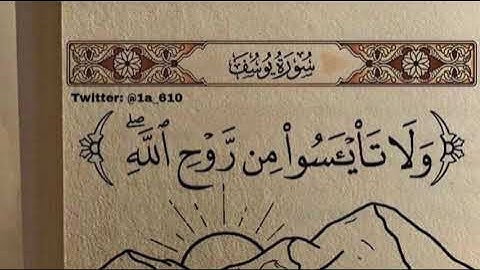 سُورَةُ يُوسُفَ
Twitter: @1a_610
﴿وَلَا تَا۟يْـَٔسُوا۟ مِن رَّوْحِ ٱللَّهِ ۖ﴾